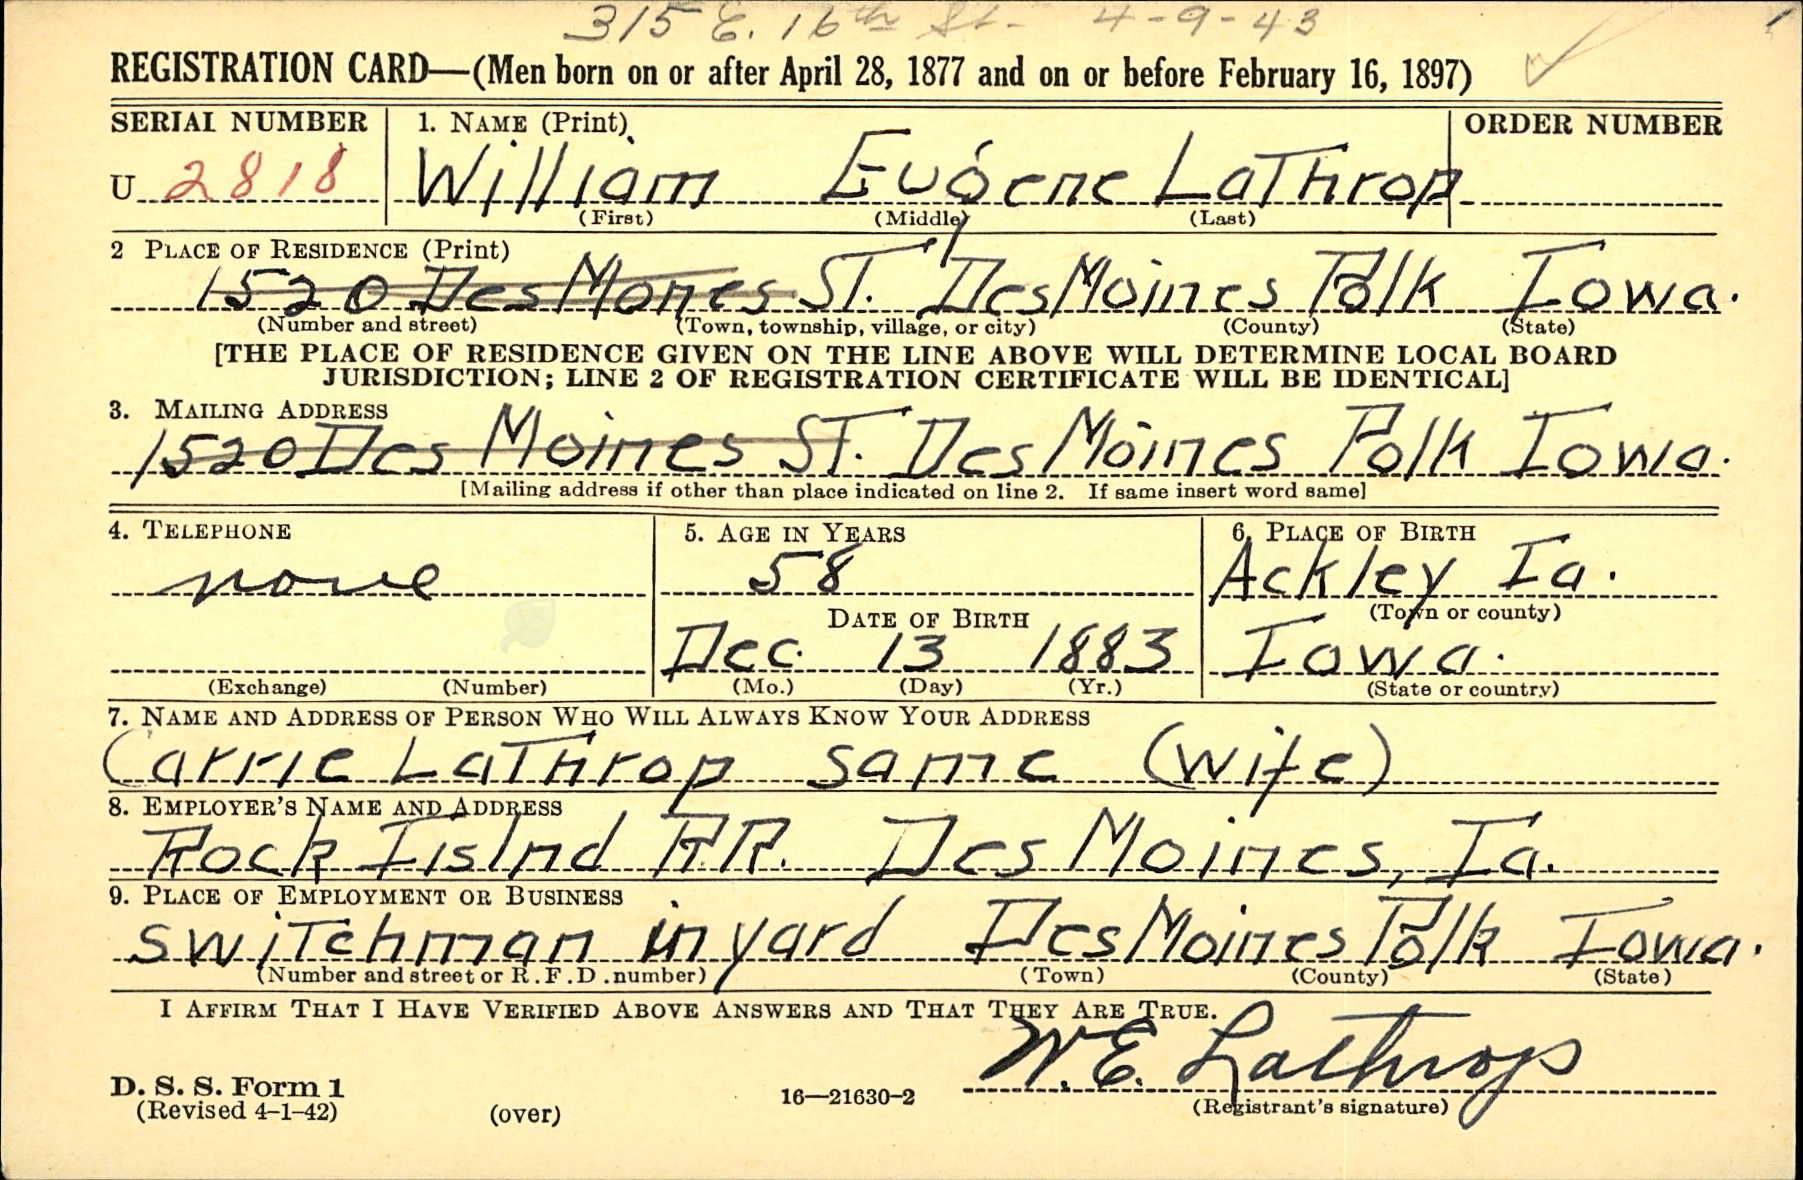 315 E. 16th St. 4-9-43
REGISTRATION CARD—(Men born on or after April 28, 1877 and on or before February 16, 1897)
SERIAL NUMBER 1. NAME (Print) ORDER NUMBER
U 2818 William Eugene LaThrop
(First) (Middle) (Last)
2 PLACE OF RESIDENCE (Print)
1520 Des Mones ST. Des Moines Polk Iowa.
(Number and street) (Town, township, village, or city) (County) (State)
[THE PLACE OF RESIDENCE GIVEN ON THE LINE ABOVE WILL DETERMINE LOCAL BOARD
JURISDICTION; LINE 2 OF REGISTRATION CERTIFICATE WILL BE IDENTICAL]
3. MAILING ADDRESS
1520 Des Moines ST. Des Moines Polk Iowa.
[Mailing address if other than place indicated on line 2. If same insert word same]
4. TELEPHONE 5. AGE IN YEARS 6. PLACE OF BIRTH
none 58 Ackley Ia.
(Town or county)
DATE OF BIRTH
Dec. 13 1883 Iowa.
(Exchange) (Number) (Mo.) (Day) (Yr.) (State or country)
7. NAME AND ADDRESS OF PERSON WHO WILL ALWAYS KNOW YOUR ADDRESS
Carrie LaThrop same (wife)
8. EMPLOYER'S NAME AND ADDRESS
Rock Islnd R.R. Des Moines, Ia.
9. PLACE OF EMPLOYMENT OR BUSINESS
switchman in yard Des Moines Polk Iowa.
(Number and street or R.F.D. number) (Town) (County) (State)
I AFFIRM THAT I HAVE VERIFIED ABOVE ANSWERS AND THAT THEY ARE TRUE.
W. E. Lathrop
D. S. S. Form 1
(Revised 4-1-42) (over) 16—21630-2 (Registrant's signature)